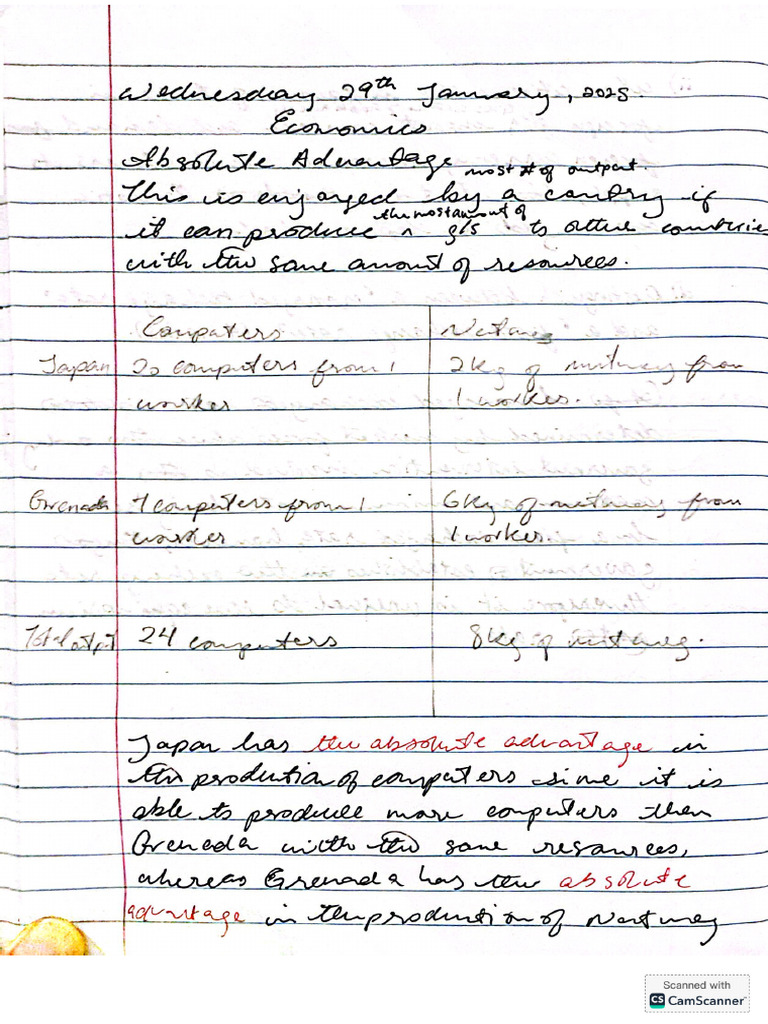 Wednesday 29th January, 2025.
Economics
Absolute Advantage
most # of output.
This is enjoyed by a country if
the most amount of
it can produce ^ g/s to other countries
with the same amount of resources.
Computers Nutmeg
Japan 20 computers from 1 2kg of nutmeg from
worker 1 worker.
Grenada 4 computers from 1 6kg of nutmeg from
worker 1 worker.
Total output 24 computers 8kg of nutmeg.
Japan has the absolute advantage in
the production of computers since it is
able to produce more computers than
Grenada with the same resources,
whereas Grenada has the absolute
advantage in the production of Nutmeg
Scanned with
CS CamScanner